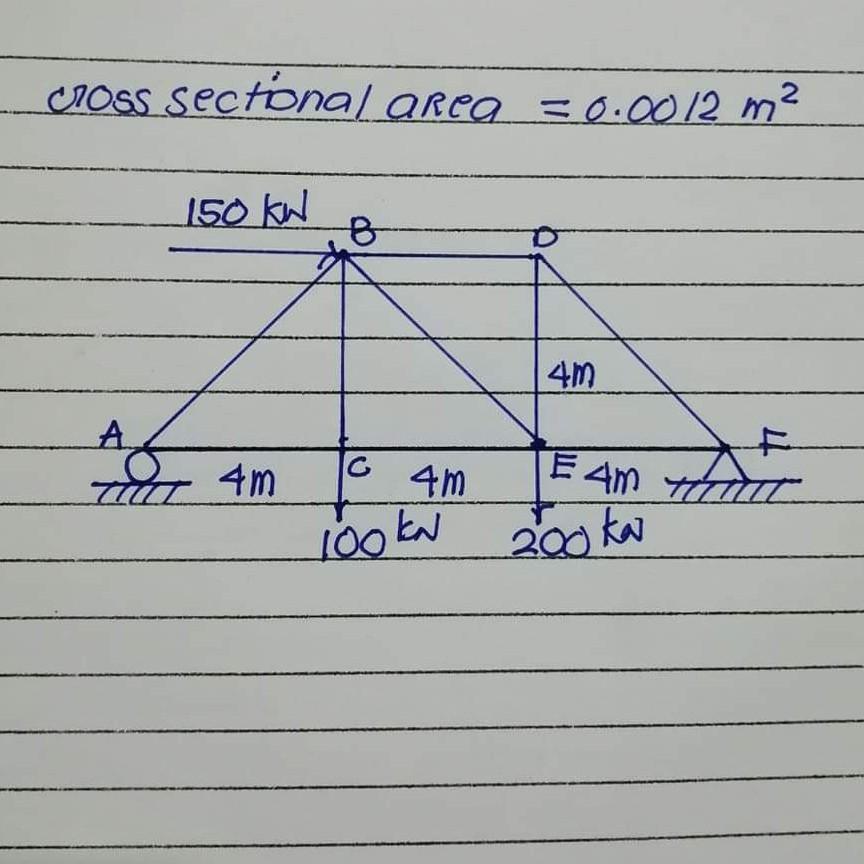 cross sectional area = 0.0012 m²
150 kN
B
D
4m
A
F
4m
C
4m
E
4m
100 kN
200 kN